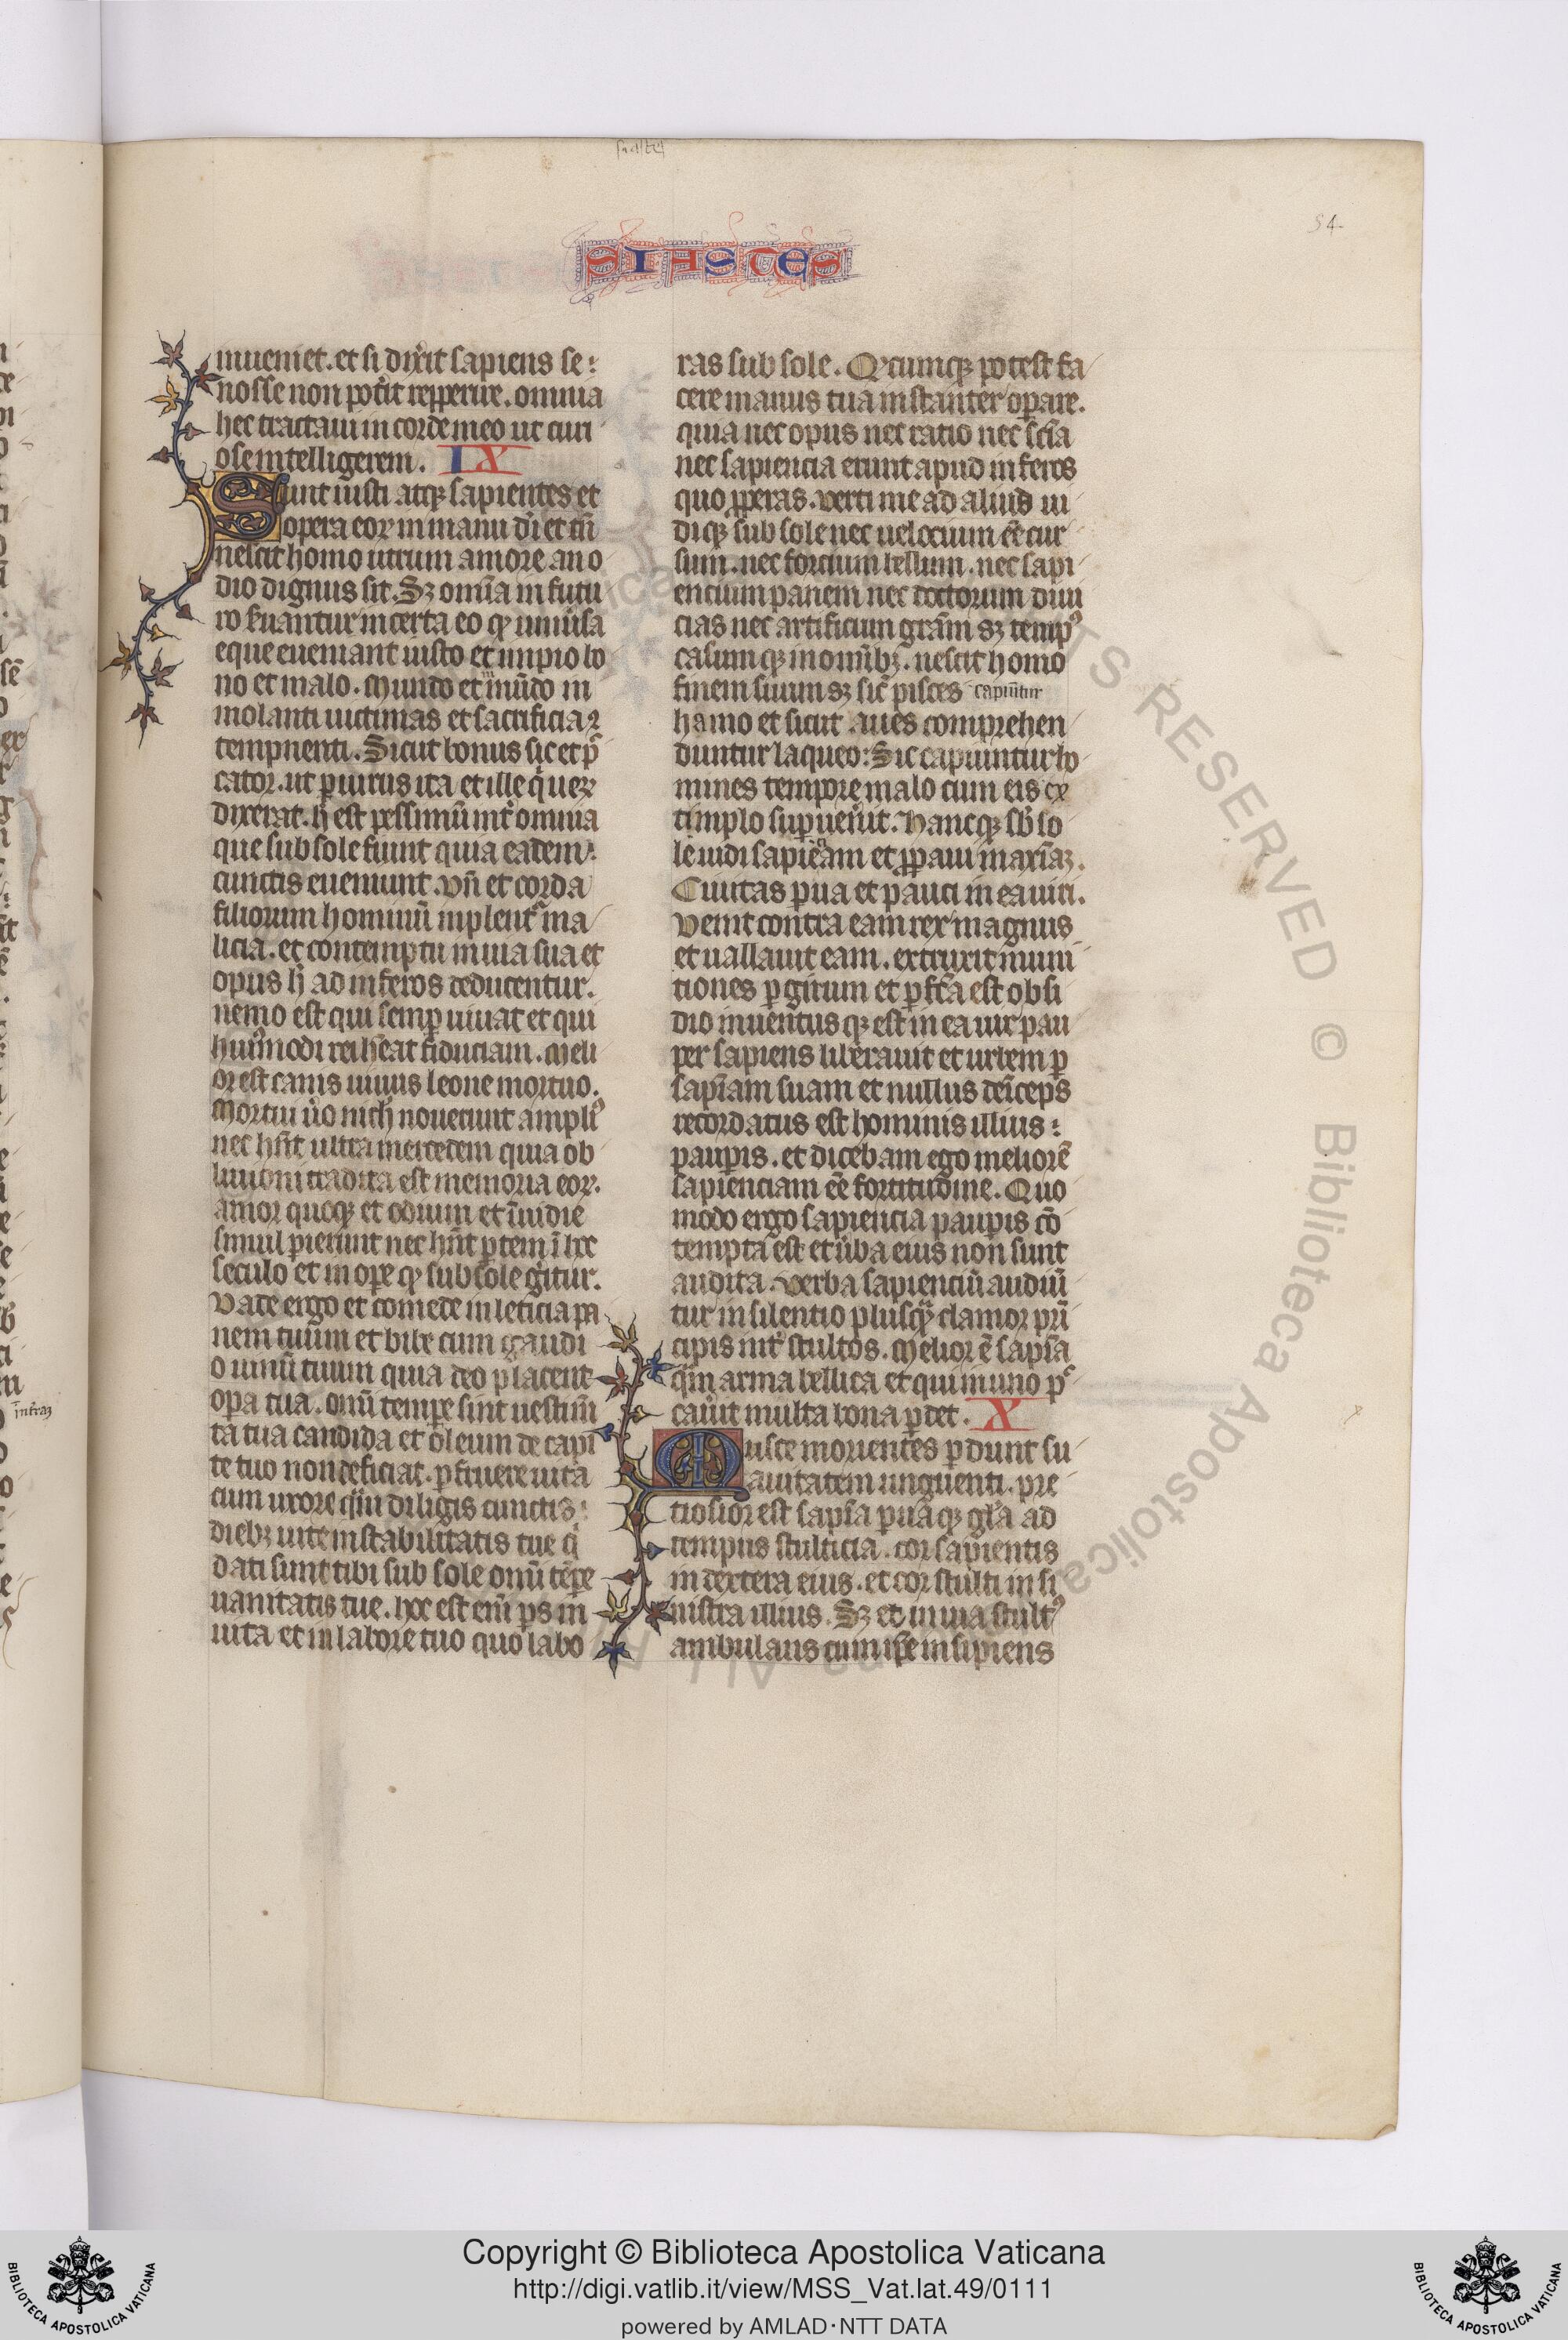 SIASTES
54
inueniet. et si dixerit sapiens se:
nosse non pot̾it repperire. omnia
hec tractaui in corde meo ut curi
ose intelligerem. IX
Sunt iusti atqꝫ sapientes et
opera eoꝝ in manu dī et tñ
nescit homo utrum amore an o
dio dignus sit. Sꝫ om̄ia in futu
ro s̾uantur incerta eo ꝙ uniu̾sa
eque eueniant iusto et impio bo
no et malo. mundo et inmūdo in
molanti uictimas et sacrificia ꝯ
tempnenti. Sicut bonus sic et pc̄
cator. ut ꝑiurus ita et ille qͥ ueꝝ
dixerat. h̄ est pessimū int̾ omnia
que sub sole fiunt quia eadem:
cunctis eueniunt. vn̄ et corda
filiorum hominū inplentᷣ ma
licia. et contemptu in uia sua et
opus h̄ ad inferos deducentur.
nemo est qui semꝑ uiuat et qui
huiꝰmodi rei h̄eat fiduciam. Meli
or est canis uiuus leone mortuo.
Mortui u̾o nich̄ nouerunt ampliꝰ
nec hn̄t ultra mercedem quia ob
liuioni tradita est memoria eoꝝ.
amor quoqꝫ et odium et īuidie
simul ꝑierunt nec hn̄t ꝑtem ī hoc
seculo et in oꝑe ꝙ sub sole g̾itur.
Vade ergo et comede in leticia pa
nem tuum et bibe cum gaudi
o uinū tuum quia deo placent
oꝑa tua. omī tempe sint uestim̄
ta tua candida et oleum de capi
te tuo non deficiat. ꝑfruere uita
cum uxore qͣm diligis cunctis:
diebꝫ uite instabilitatis tue qͥ
dati sunt tibi sub sole omī tēpe
uanitatis tue. hec est enī ps in
uita et in labore tuo quo labo
ras sub sole. Qͦdcumqꝫ potest fa
cere manus tua instanter oꝑare.
quia nec opus nec ratio nec scīa
nec sapiencia erunt apud inferos
quo ꝓperas. verti me ad aliud ui
diqꝫ sub sole nec uelocium eē cur
sum. nec forcium bellum. nec sapi
encium panem nec doctorum diui
cias nec artificium grām sꝫ tempꝰ
casumqꝫ in omībꝫ. nescit homo
finem suum sꝫ sic̄ pisces capiūtur
hamo et sicut aues comprehen
duntur laqueo: Sic capiuntur ho
mines tempore malo cum eis ex
timplo suꝑuen̾it. Hancqꝫ sb̄ so
le uidi sapiēciam et ꝓbaui maxīaꝫ.
Ciuitas ꝑua et pauci in ea uiri.
venit contra eam rex magnus
et uallauit eam. extruxit muni
tiones ꝑ girum et ꝑfc̄a est obsi
dio inuentusqꝫ est in ea uir pau
per sapiens liberauit et urbem ꝑ
sapīam suam et nullus deīceps
recordatus est hominis illius:
pauꝑis. et dicebam ego meliorē
sapienciam eē fortitudine. Quo
modo ergo sapiencia pauꝑis cō
tempta est et u̾ba eius non sunt
audita. Verba sapienciū audiū
tur in silentio plusqͣ clamor prī
cipis int̾ stultos. Melior ē sapīa
qͣm arma bellica et qui in uno pc̄
cau̾it multa bona ꝑdet. X
Musce morientes ꝑdunt su
auitatem unguenti. pre
tiosior est sapīa ꝑuaqꝫ gl̄a ad
tempus stulticia. cor sapientis
in dextera eius. et cor stulti in si
nistra illius. Sꝫ et in uia stultꝰ
ambulans cum ipse insipiens
Copyright © Biblioteca Apostolica Vaticana
http://digi.vatlib.it/view/MSS_Vat.lat.49/0111
powered by AMLAD·NTT DATA
BIBLIOTECA APOSTOLICA VATICANA
BIBLIOTECA APOSTOLICA VATICANA